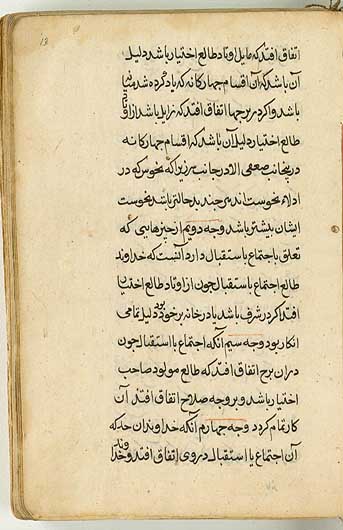 اتفاق افتد که مایل اوتاد طالع اختیار باشد دلیل
آن باشد که آن اقسام چهارکانه که یاد کرده شد
باشد و اکر در برجها اتفاق افتد که زایل باشد از اوتاد
طالع اختیار دلیل آن باشد که اقسام چهارکانه
در جانب که نحوس که در
اند هر چند بدحالتر باشد نحوست
ایشان بیشتر باشد وجه دویم از چیزهایی که
تعلق باجتماع یا استقبال دارد آنست که خداوند
طالع اجتماع یا استقبال چون از اوتاد طالع اختیار
افتد اکر در شرف باشد یا در خانه بر خود بود دلیل تمامی
آن کار بود وجه سیم آنکه اجتماع یا استقبال چون
در آن برج اتفاق افتد که طالع مولود صاحب
اختیار باشد و بر وجه صلاح اتفاق افتد آن
کار تمام کردد وجه چهارم آنکه خداوندان حد که
آن اجتماع یا استقبال در وی اتفاق افتد و خداوند